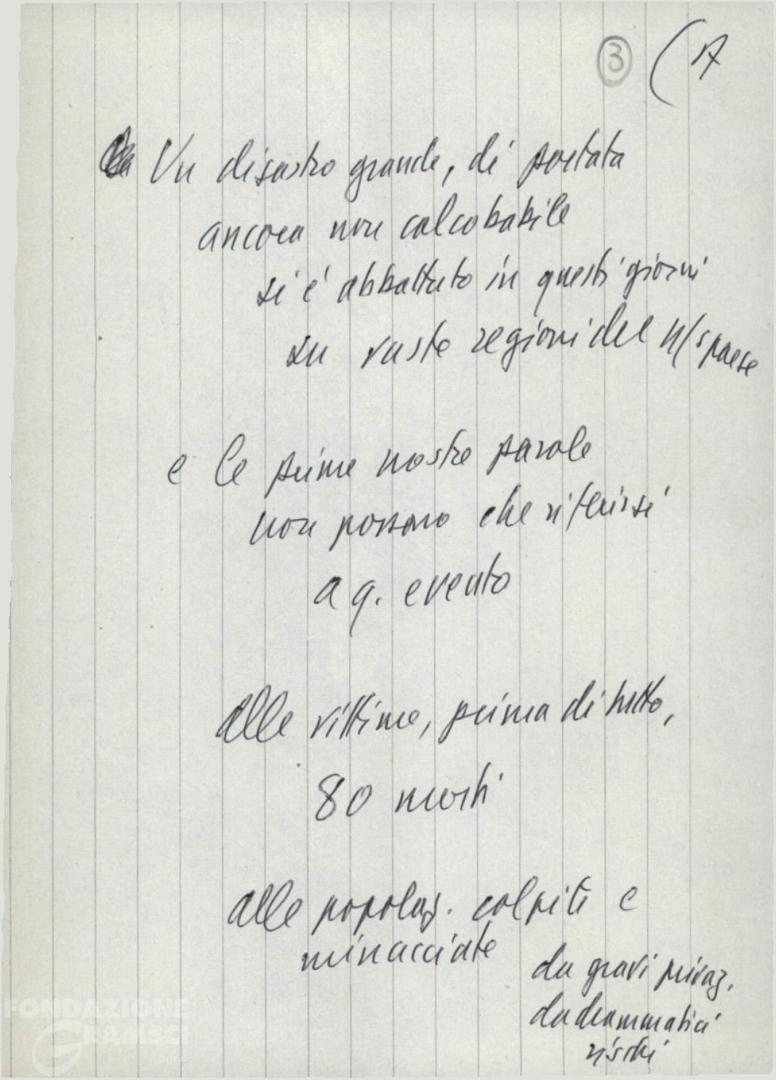 3 (A
Un disastro grande, di portata
ancora non calcolabile
si è abbattuto in questi giorni
su vaste regioni del n/s paese
e le prime nostre parole
non possono che riferirsi
a q. evento
alle vittime, prima di tutto,
80 morti
alle popolaz. colpite e
minacciate
da gravi privaz.
da drammatici
rischi
FONDAZIONE
GRAMSCI